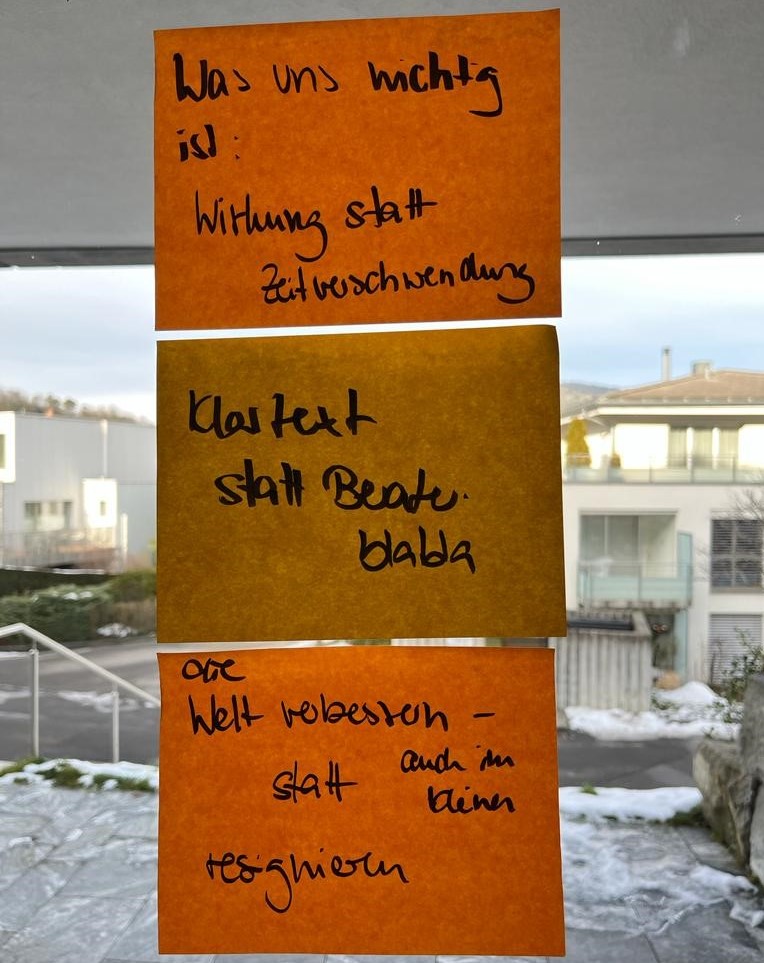 Was uns wichtig
ist:
Wirkung statt
Zeitverschwendung
Klartext
statt Berater.
blabla
die
Welt verbessern -
auch im
statt kleinen
resignieren